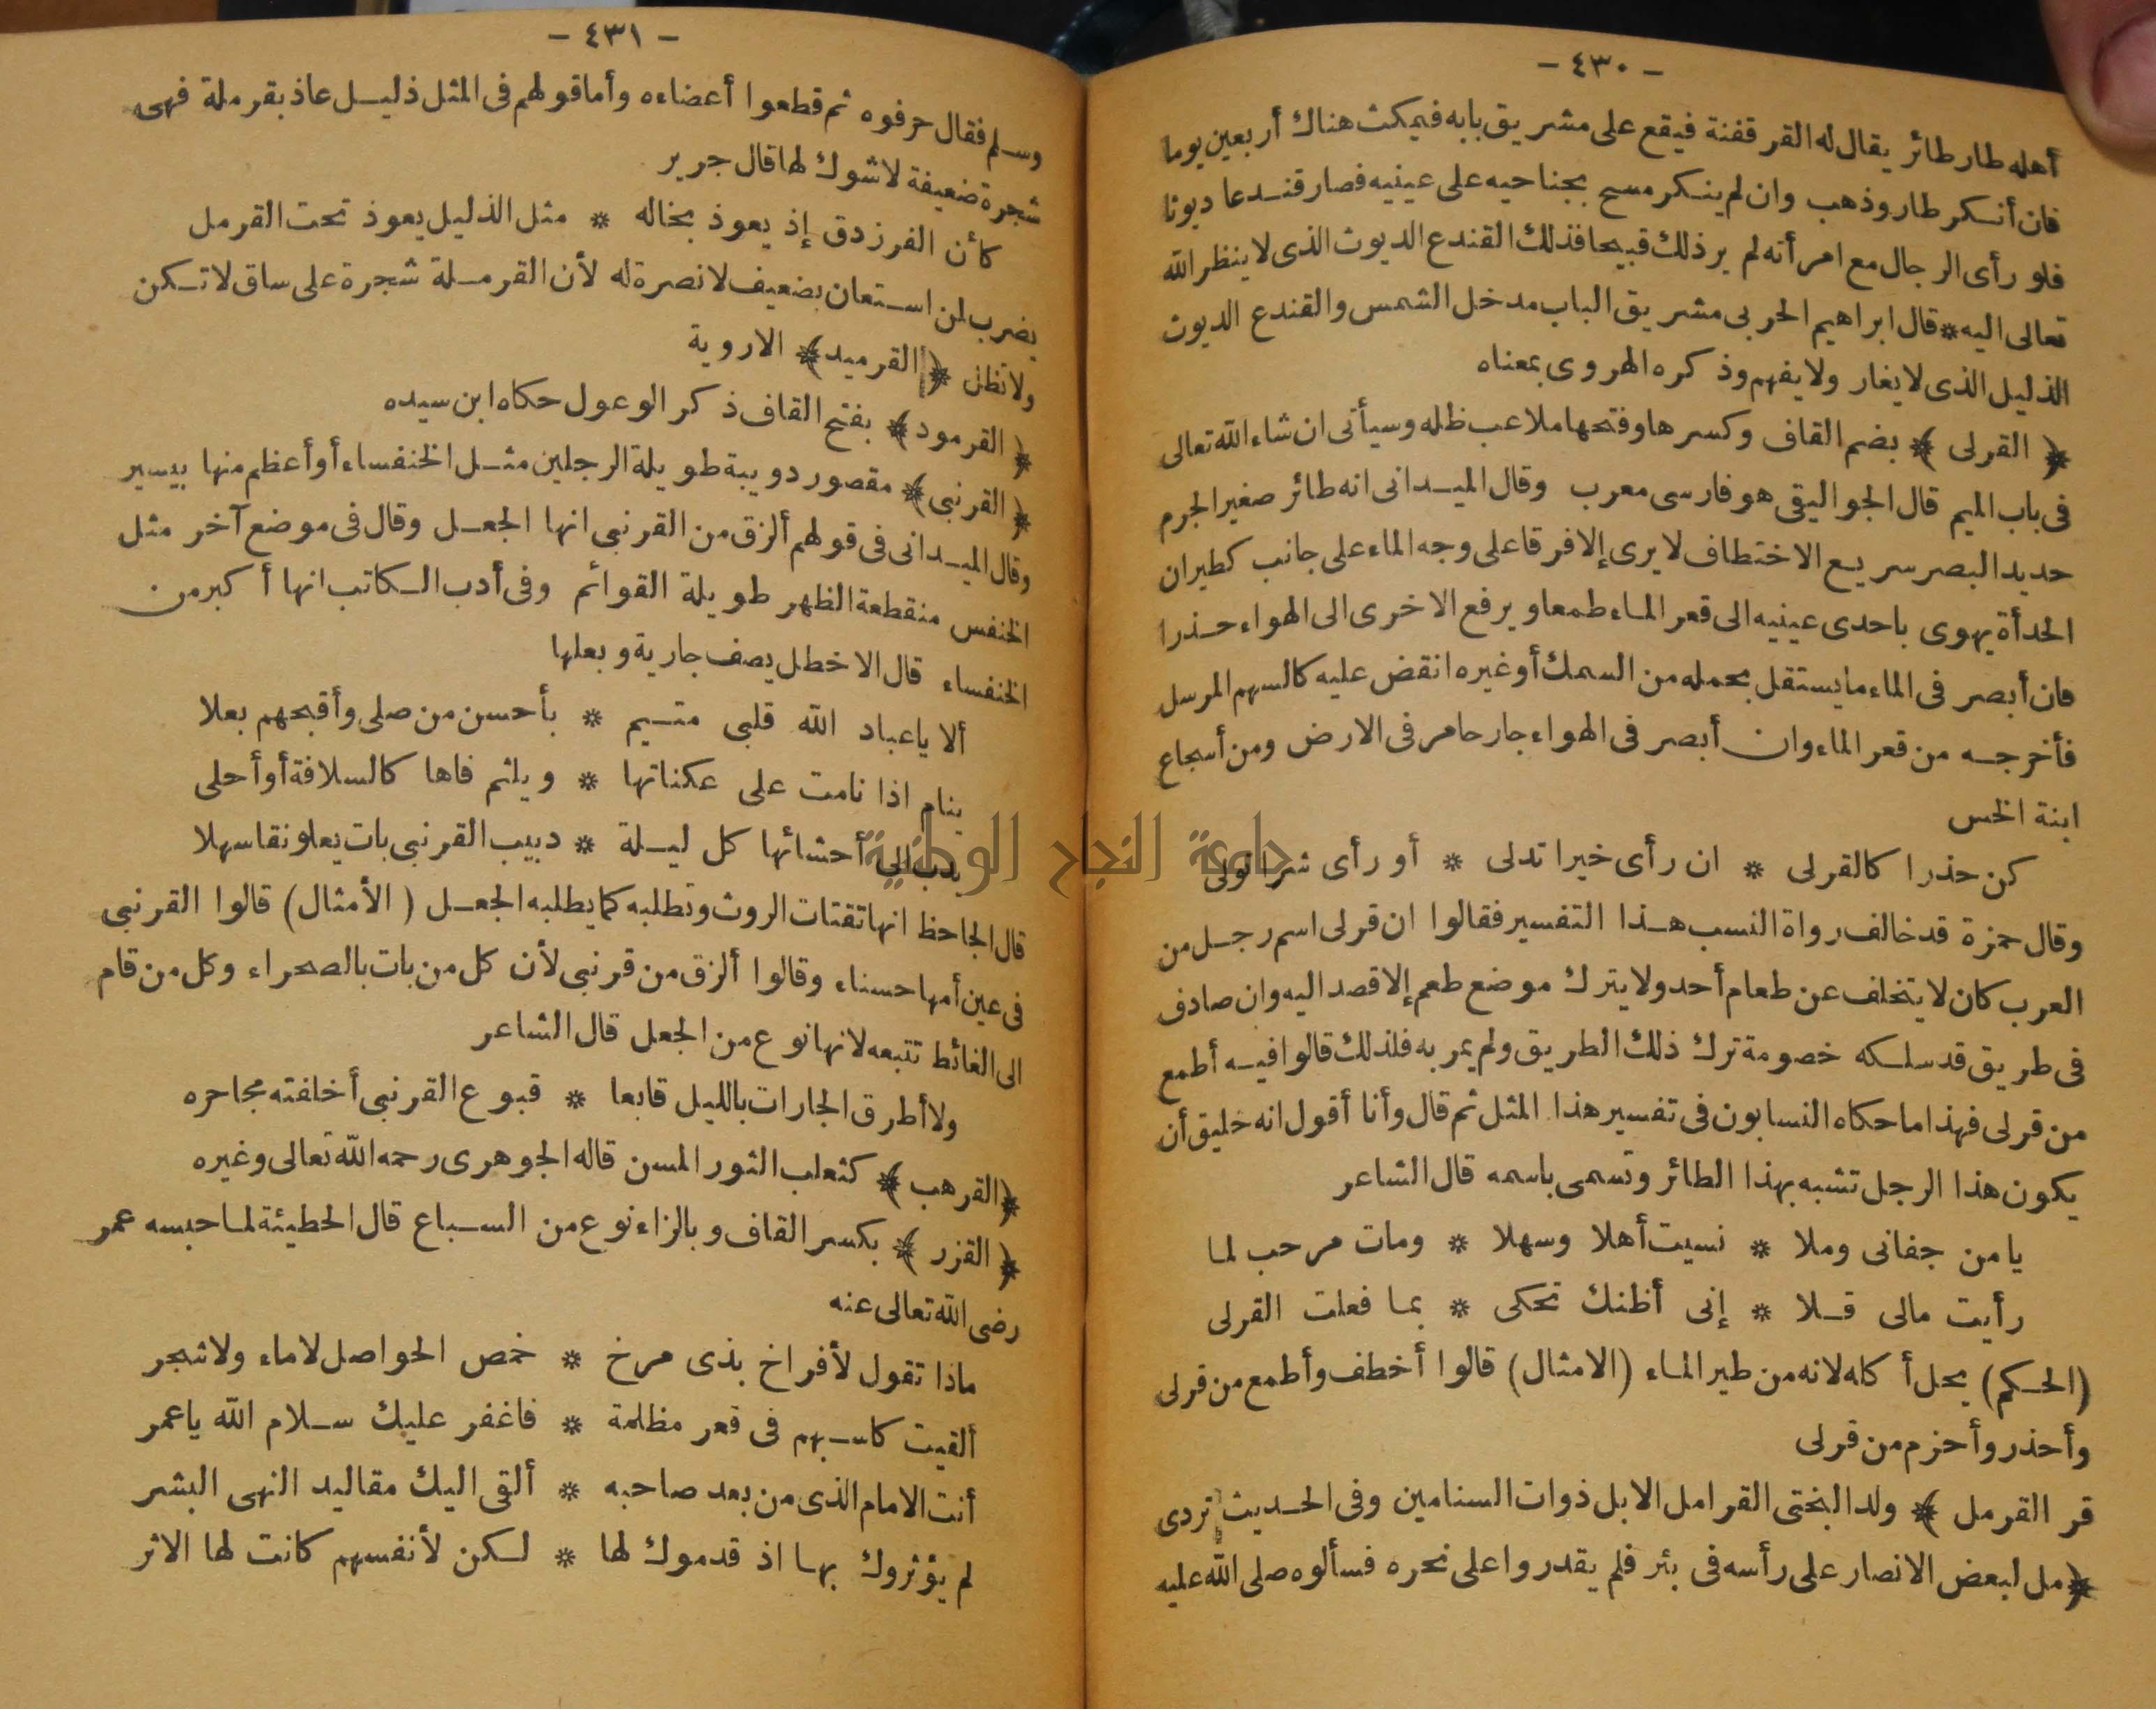 - ٤٣٠ -
أهله طار طائر يقال له القرقفنة فيقع على مشريق بابه فيمكث هناك أربعين يوما
فان أنكر طار وذهب وان لم ينكر مسح بجناحيه على عينيه فصار قندعا ديوثا
فلو رأى الرجال مع امرأته لم ير ذلك قبيحا فذلك القندع الديوث الذى لا ينظر الله
تعالى اليه * قال ابراهيم الحربى مشريق الباب مدخل الشمس والقندع الديوث
الذليل الذى لا يغار ولا يفهم وذكره الهروى بمعناه
﴿ القرلى ﴾ بضم القاف وكسرها وفتحها ملاعب ظله وسيأتى ان شاء الله تعالى
فى باب الميم قال الجواليقى هو فارسى معرب وقال الميدانى انه طائر صغير الجرم
حديد البصر سريع الاختطاف لا يرى إلا فرقا على وجه الماء على جانب كطيران
الحدأة يهوى باحدى عينيه الى قعر الماء طمعا ويرفع الاخرى الى الهواء حذرا
فان أبصر فى الماء ما يستقل بحمله من السمك أو غيره انقض عليه كالسهم المرسل
فأخرجه من قعر الماء وان أبصر فى الهواء جارحا مر فى الارض ومن أسجاع
ابنة الخس
كن حذرا كالقرلى * ان رأى خيرا تدلى * أو رأى شرا تولى
وقال حمزة قد خالف رواة النسب هذا التفسير فقالوا ان قرلى اسم رجل من
العرب كان لا يتخلف عن طعام أحد ولا يترك موضع طعم إلا قصد اليه وان صادف
فى طريق قد سلكه خصومة ترك ذلك الطريق ولم يمر به فلذلك قالوا فيه أطمع
من قرلى فهذا ما حكاه النسابون فى تفسير هذا المثل ثم قال وأنا أقول انه خليق أن
يكون هذا الرجل تشبه بهذا الطائر وتسمى باسمه قال الشاعر
يا من جفانى وملا * نسيت أهلا وسهلا * ومات مرحب لما
رأيت مالى قلا * إنى أظنك تحكى * بما فعلت القرلى
(الحكم) يحل أكله لانه من طير الماء (الامثال) قالوا أخطف وأطمع من قرلى
وأحذر وأحزم من قرلى
قر القرمل ﴾ ولد البختى القرامل الابل ذوات السنامين وفى الحديث تردى
﴿ مل لبعض الانصار على رأسه فى بئر فلم يقدروا على نحره فسألوه صلى الله عليه
- ٤٣١ -
وسلم فقال حرفوه ثم قطعوا أعضاءه وأما قولهم فى المثل ذليل عاذ بقرملة فهى
شجرة ضعيفة لا شوك لها قال جرير
كأن الفرزدق إذ يعوذ بخاله * مثل الذليل يعوذ تحت القرمل
يضرب لمن استعان بضعيف لا نصرة له لأن القرملة شجرة على ساق لا تكن
ولا تظل ﴿ القرميد ﴾ الاروية
﴿ القرمود ﴾ بفتح القاف ذكر الوعول حكاه ابن سيده
﴿ القرنبى ﴾ مقصور دويبة طويلة الرجلين مثل الخنفساء أو أعظم منها بيسير
وقال الميدانى فى قولهم ألزق من القرنبى انها الجعل وقال فى موضع آخر مثل
الخنفس منقطعة الظهر طويلة القوائم وفى أدب الكاتب انها أكبر من
الخنفساء قال الاخطل يصف جارية وبعلها
ألا يا عباد الله قلبى متيم * بأحسن من صلى وأقبحهم بعلا
ينام اذا نامت على عكناتها * ويلثم فاها كالسلافة أو أحلى
يدب الى أحشائها كل ليلة * دبيب القرنبى بات يعلو نقا سهلا
قال الجاحظ انها تقتات الروث وتطلبه كما يطلبه الجعل (الأمثال) قالوا القرنبى
فى عين أمها حسناء وقالوا ألزق من قرنبى لأن كل من بات بالصحراء وكل من قام
الى الغائط تتبعه لانها نوع من الجعل قال الشاعر
ولا أطرق الجارات بالليل قابعا * قبوع القرنبى أخلفته مجاحره
﴿ القرهب ﴾ كثعلب الثور المسن قاله الجوهرى رحمه الله تعالى وغيره
﴿ القزر ﴾ بكسر القاف وبالزاء نوع من السباع قال الحطيئة لما حبسه عمر
رضى الله تعالى عنه
ماذا تقول لأفراخ بذى مرخ * خمص الحواصل لا ماء ولا شجر
ألقيت كاسبهم فى قعر مظلمة * فاغفر عليك سلام الله يا عمر
أنت الامام الذى من بعد صاحبه * ألقى اليك مقاليد النهى البشر
لم يؤثروك بها اذ قدموك لها * لكن لأنفسهم كانت لها الاثر
جامعة النجاح الوطنية